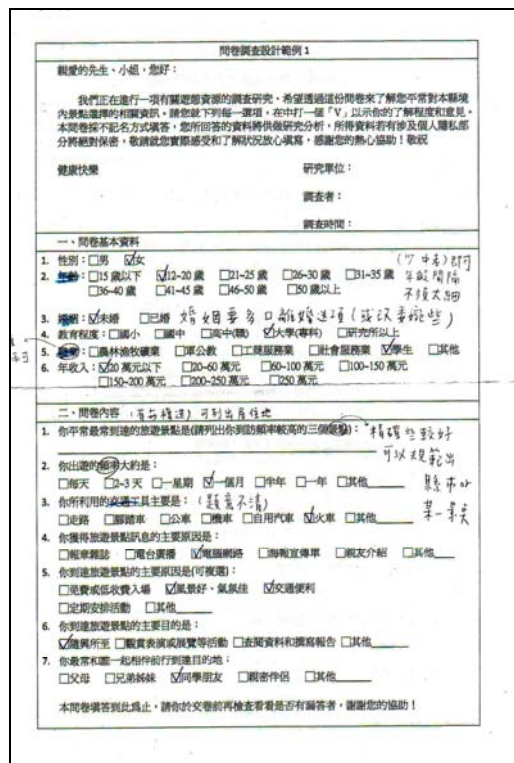 問卷調查設計範例 1
親愛的先生、小姐，您好：
我們正在進行一項有關遊憩資源的調查研究，希望透過這份問卷來了解您平常對本縣境
內景點選擇的相關資訊。請您就下列每一選項，在中打一個「V」以示你的了解程度和意見。
本問卷採不記名方式填答，您所回答的資料將供做研究分析，所得資料若有涉及個人隱私部
分將絕對保密，敬請就您實際感受和了解狀況放心填寫，感謝您的熱心協助！敬祝
健康快樂 研究單位：
調查者：
調查時間：
一、問卷基本資料
1. 性別：□男 ☑女
2. 年齡：□15 歲以下 ☑12~20 歲 □21~25 歲 □26~30 歲 □31~35 歲
□36~40 歲 □41~45 歲 □46~50 歲 □50 歲以上
即可
年齡間隔
不須太細
3. 婚姻：☑未婚 □已婚 婚姻要多口離婚選項(或改委婉些)
4. 教育程度：□國小 □國中 □高中(職) ☑大學(專科) □研究所以上
5. 職業：□農林漁牧礦業 □軍公教 □工商服務業 □社會服務業 ☑學生 □其他
6. 年收入：☑20 萬元以下 □20~60 萬元 □60~100 萬元 □100~150 萬元
□150~200 萬元 □200~250 萬元 □250 萬元
二、問卷內容 可列出居住地
1. 你平常最常到達的旅遊景點是(請列出你到訪頻率較高的三個景點)：
精確些較好
可以規範出
縣市or
某一景點
2. 你出遊的頻率大約是：
□每天 □2~3 天 □一星期 ☑一個月 □半年 □一年 □其他
3. 你所利用的交通工具主要是： (題意不清)
□走路 □腳踏車 □公車 □機車 □自用汽車 ☑火車 □其他
4. 你獲得旅遊景點訊息的主要原因是：
□報章雜誌 □電台廣播 ☑電腦網路 □海報宣傳單 □親友介紹 □其他
5. 你到達旅遊景點的主要原因是(可複選)：
□免費或低收費入場 ☑風景好、氣氛佳 ☑交通便利
□定期安排活動 □其他
6. 你到達旅遊景點的主要目的是：
☑隨興所至 □觀賞表演或展覽等活動 □查閱資料和撰寫報告 □其他
7. 你最常和誰一起相伴前行到達目的地：
□父母 □兄弟姊妹 ☑同學朋友 □親密伴侶 □其他
本問卷填答到此為止，請你於交卷前再檢查看看是否有漏答者，謝謝您的協助！